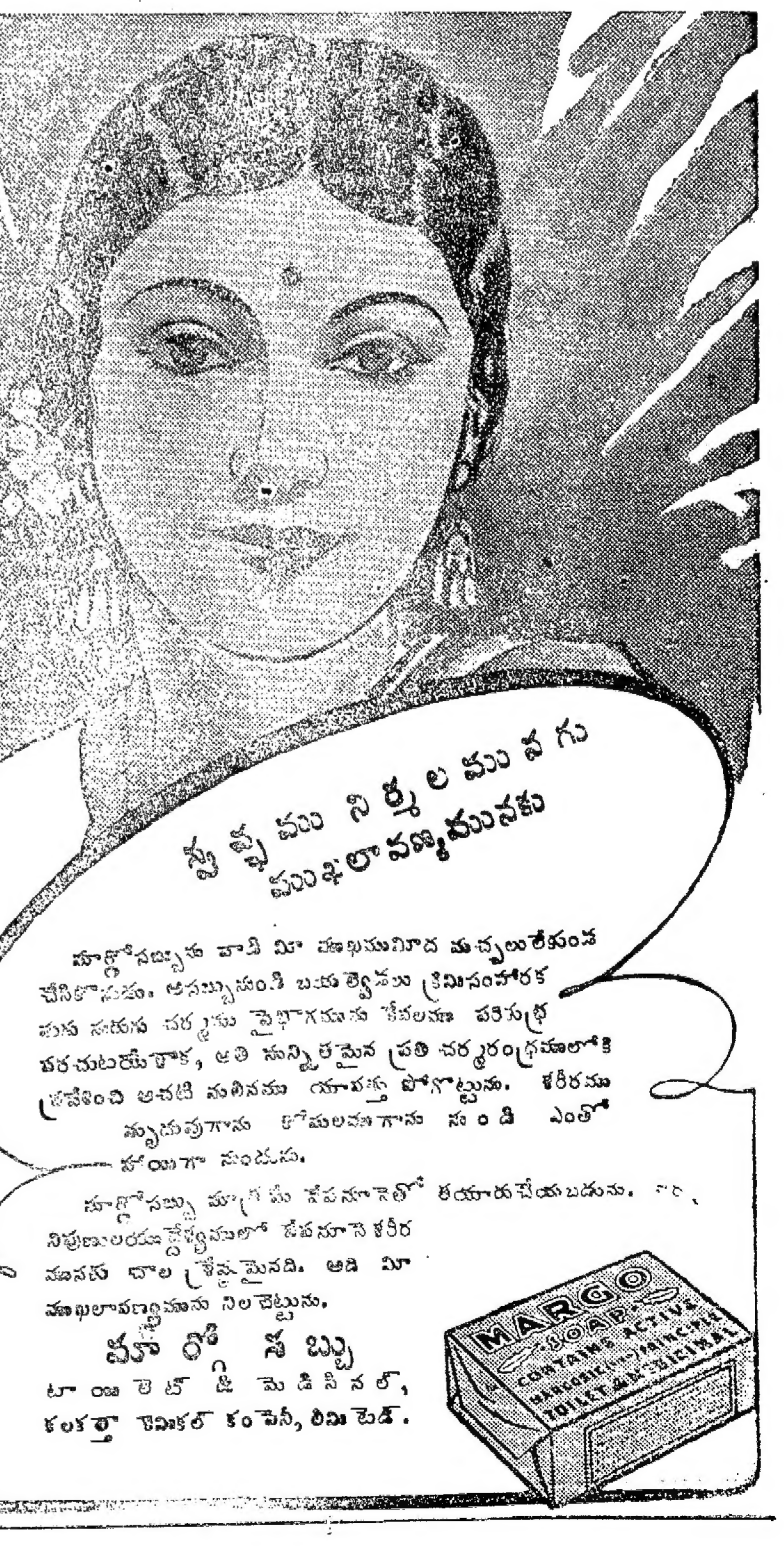 స్వచ్ఛము నిర్మలమువగు
ముఖలావణ్యమునకు
మార్గోసబ్బును వాడి మీ ముఖముమీద మచ్చలులేకుండ
చేసికొనుడు. ఆసబ్బునుండి బయల్వెడలు క్రిమిసంహారక
నురుగు చర్మము పైభాగమును కేవలము పరిశుభ్ర
పరచుటయేగాక, అతి సున్నితమైన ప్రతి చర్మరంధ్రములలోకి
ప్రవేశించి అచటి మలినము యావత్తు పోగొట్టును. శరీరము
మృదువుగాను కోమలముగాను నుండి ఎంతో
హాయిగా నుండును.
మార్గోసబ్బు మాత్రమే వేపనూనెతో తయారుచేయబడును.
నిపుణులయుద్దేశ్యములో వేపనూనె శరీర
మునకు చాల శ్రేష్ఠమైనది. అది మీ
ముఖలావణ్యమును నిలబెట్టును.
మార్గో సబ్బు
టాయిలెట్ & మెడిసినల్,
కలకత్తా కెమికల్ కంపెనీ, లిమిటెడ్.
MARGO
SOAP
CONTAINS ACTIVE
MARGOSIC PRINCIPLE
TOILET & MEDICINAL